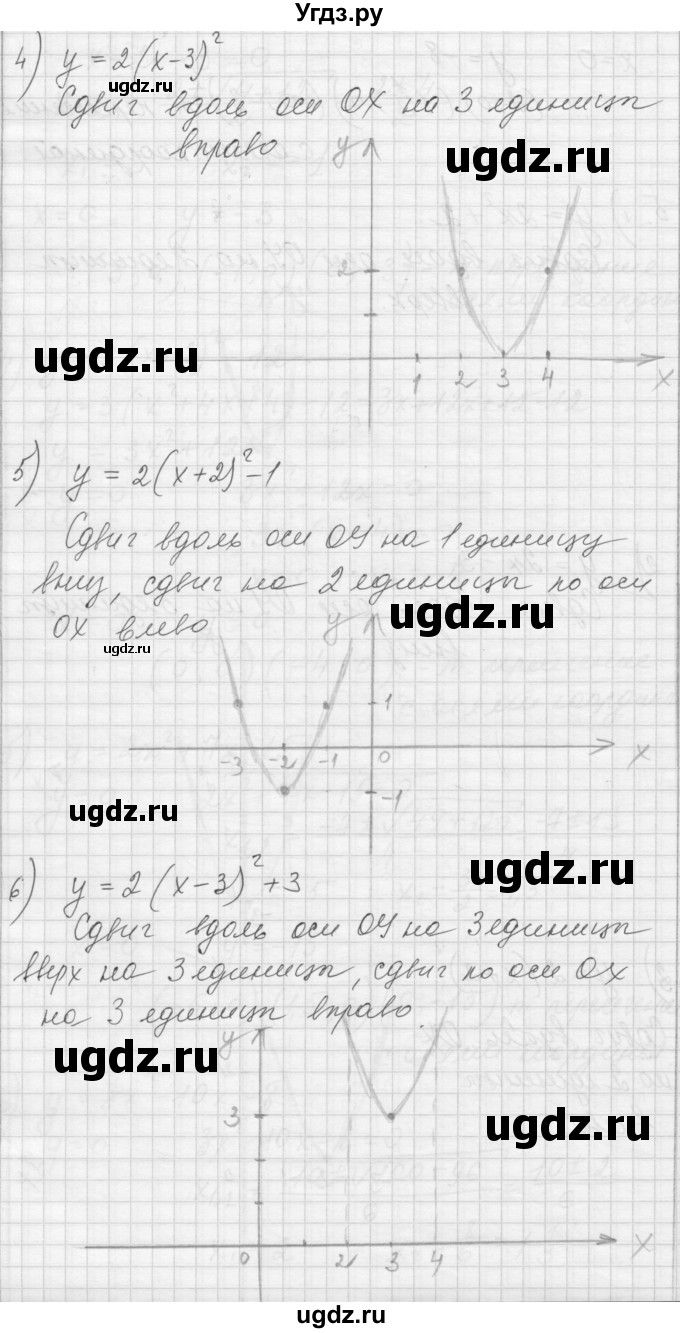 Угдз.ру
4) y = 2(x-3)²
ugdz.ru
Сдвиг вдоль оси OX на 3 единицы
вправо
y
ugdz.ru
2
ugdz.ru
1 2 3 4 x
5) y = 2(x+2)²-1
Сдвиг вдоль оси OY на 1 единицу
вниз, сдвиг на 2 единицы по оси
OX влево
ugdz.ru
y
ugdz.ru
1
-3 -2 -1 0 x
-1
ugdz.ru
6) y = 2(x-3)²+3
ugdz.ru
Сдвиг вдоль оси OY на 3 единицы
вверх на 3 единицы, сдвиг по оси OX
на 3 единицы вправо.
ugdz.ru
y
3
ugdz.ru
0 2 3 4 x
ugdz.ru